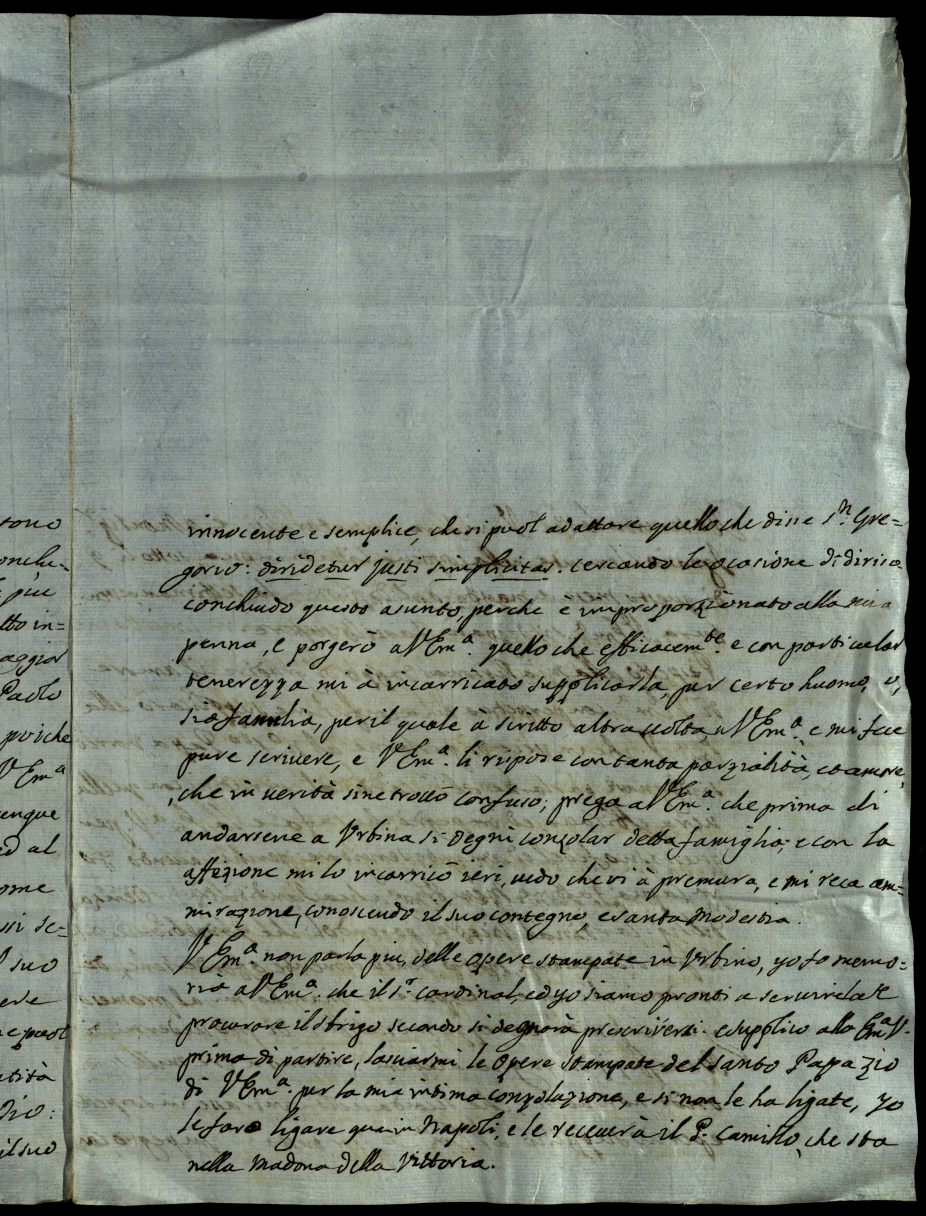 tono
onclu-
più
tto in=
aggior
Paolo
poiche
V Em.ª
unque
ed al
ome
ssi se-
l suo
ere
e puol
ntità
Dio:
il suo
innocente e semplice, che si puol adattare quello che disse S.n Gre=
gorio: diridetur justi simplicitas. cercando le ocasione di diriso.
conchiudo questo asunto, perche è improporzionato alla mia
penna, e porgerò a V Em.ª quello che efficacem.te e con particular
tenerezza mi à incarricato supplicarla, per certo huomo, o,
sia familia, per il quale à scritto altra uolta, a V Em.ª e mi fece
pure scriuere, e V Em.ª li rispose con tanta parzialità, et amore,
che in uerità si ne trouò confuso; prega a V Em.ª che prima di
andarsene a Vrbina si degni conzolar detta famiglia; e con la
affezione mi lo incarricò ieri, uedo che ui à premura, e mi reca am=
mirazione, conoscendo il suo contegno, e santa modestia.
V Em.ª non parla piu, delle opere stampate in Vrbino, yo fo memo=
ria a V Em.ª che il s.r cardinal, ed yo siamo pronti a seruirela e
procurare il sbrigo secondo si degnarà prescriverci. e supplico alla Em.ª V.
prima di partire, lasciarmi le opere stampate del santo Papa zio
di V Em.ª per la mia intima conzolazione, e si non le ha ligate, yo
le faro ligare qua in Napoli, e le receuerà il P. Camillo, che sta
nella Madona della Vittoria.